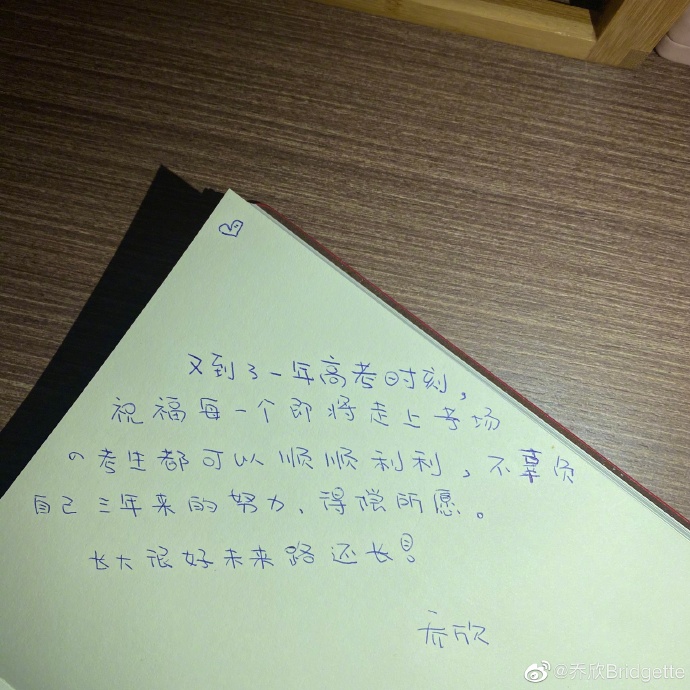 又到了一年高考时刻，
祝福每一个即将走上考场
の考生都可以顺顺利利，不辜负
自己三年来的努力、得偿所愿。
长大很好未来路还长！
乔欣
@乔欣Bridgette